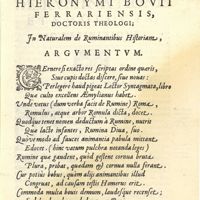 HIERONYMI BOVII
FERRARIENSIS,
DOCTORIS THEOLOGI;
In Naturalem de Ruminantibus Historiam,
ARGVMENTVM.
CErnere si exactores scriptas ordine queris,
Siue cupis doctas discere, siue nouas:
Perlegere haud pigeat Lector Syntagmata, libro
Quæ culto excellens Æmylianus habet.
Unde venit (dum verba facis de Rumine) Roma,
Romulus, atque arbor Romula dicta, docet.
Quodque tenet nomen deductum à Rumine, nutrit
Quæ lacte infantes, Rumina Diua, suo.
Quidue modo ad fauces animantia pabula mittant
Edocet. (hinc vatum pulchra notanda leges)
Rumine quæ gaudent, quid gestent cornua bruta.
Plura, probat, quædam cornua nulla ferant.
Cur potius bobus, quàm alijs animantibus illud
Congruat, ad causam testis Homerus erit.
Commoda multa bouis demum, laudesque recenset;